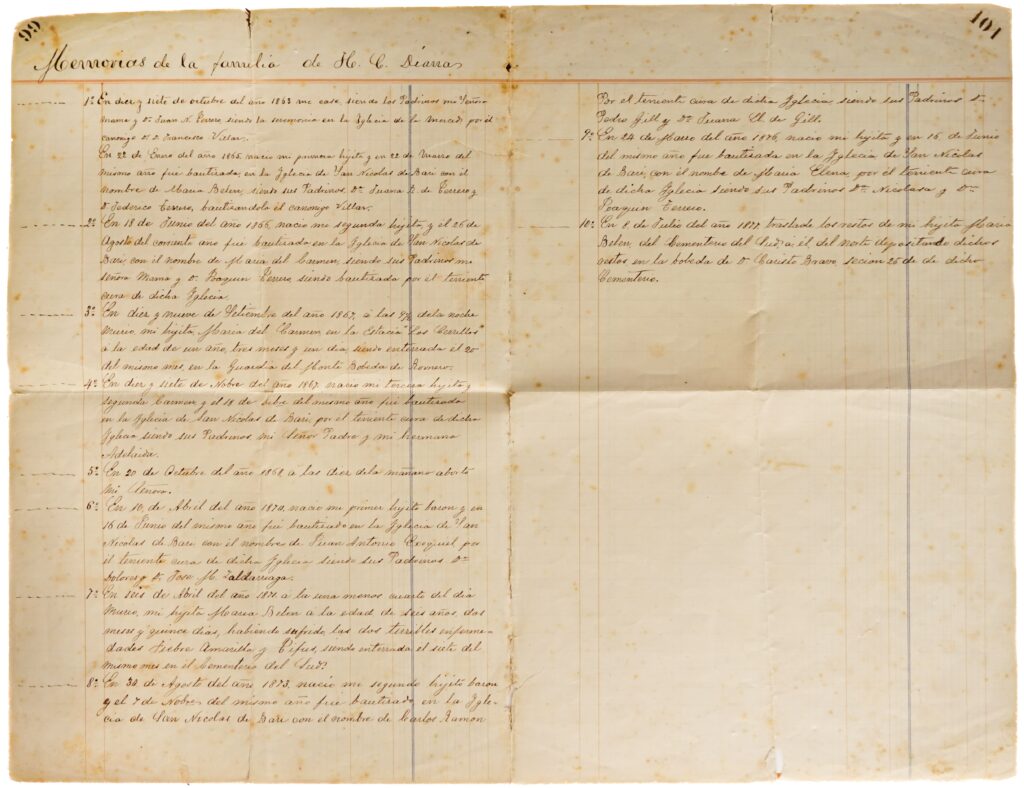 99
101
Memorias de la familia de H. C. Diana
1º En diez y siete de octubre del año 1863 me case, siendo los Padrinos mi Señora
mama y D. Juan N. Terrero siendo la ceremonia en la Iglesia de la Merced por el
canonigo D. D. Francisco Villar.
En 22 de Enero del año 1865 nacio mi primera hijita y en 22 de del
mismo año fue bautizada en la Yglesia de San Nicolas de Bari con el
nombre de Maria Belen, siendo sus Padrinos Dª Juana P. de Terrero y
D. Federico Terrero, bautizandola el canonigo Villar.
2º En 18 de Junio del año 1866, nacio me segunda hijita, y el 26 de
Agosto del corriente año fue bautizada en la Yglesia de San Nicolas de
Bari con el nombre de Maria del Carmen, siendo sus Padrinos mi
señora Mama y D. Joaquin Terrero siendo bautizada por el teniente
cura de dicha Yglecia.
3º En diez y nueve de Setiembre del año 1867, á las 9½ dela noche
Murio, mi hijita Maria del Carmen en la Estacia "Los Cerrillos"
á la edad de un año, tres meses y un dia, siendo enterrada el 20
del mismo mes, en la Guardia del Monte Bobeda de Romero.
4º En diez y siete de Nobre del año 1867, nacio mi tercera hijita y
segunda Carmen y el 18 de Dibre del mismo año fué bautizada
en la Yglecia de San Nicolas de Bari, por el teniente cura de dicha
Yglecia siendo sus Padrinos mi Señor Padre y mi hermana
Adelaida.
5º En 20 de Octubre del año 1868 á las diez dela mañana aborto
mi Señora.
6º En 10, de Abril del año 1870, nacio mi primer hijito baron y en
16 de Junio del mismo año fué bautizado en la Yglecia de San
Nicolas de Bari con el nombre de Juan Antonio Ezequiel por
el teniente cura de dicha Yglecia siendo sus Padrinos Dª
Dolores y D. Jose M. Zaldarriaga.
7º En seis de Abril del año 1871 a la una menos cuarto del dia
Murio, mi hijita Maria Belen á la edad de seis años, dos
meses y quince dias, habiendo sufrido, las dos terribles enferme-
dades Fiebre Amarilla y Tifus, siendo enterrada el siete del
mismo mes en el Cementerio del Sud.
8º En 30 de Agosto del año 1873, nacio mi segundo hijito baron
y el 7 de Nobre del mismo año fue bautizado en la Ygle-
cia de San Nicolas de Bari con el nombre de Carlos Ramon
Por el teniente cura de dicha Yglecia siendo sus Padrinos D.
Pedro Gill y Dª Juana Ch. de Gill.
9º En 24 de Marso del año 1876, nacio mi hijita y en 16 de Junio
del mismo año fue bautizada en la Yglecia de San Nicolas
de Bari, con el nombe de Maria Elena, por el teniente cura
de dicha Yglecia siendo sus Padrinos Dª Nicolasa y Dn
Joaquin Terrero.
10º En 8 de Julio del año 1877 traslade los restos de mi hijita Maria
Belen, del Cementerio del Sud, a él del norte depositando dichos
restos en la bobeda de D. Caristo Bravo, secion 25 de de dicho
Cementerio.